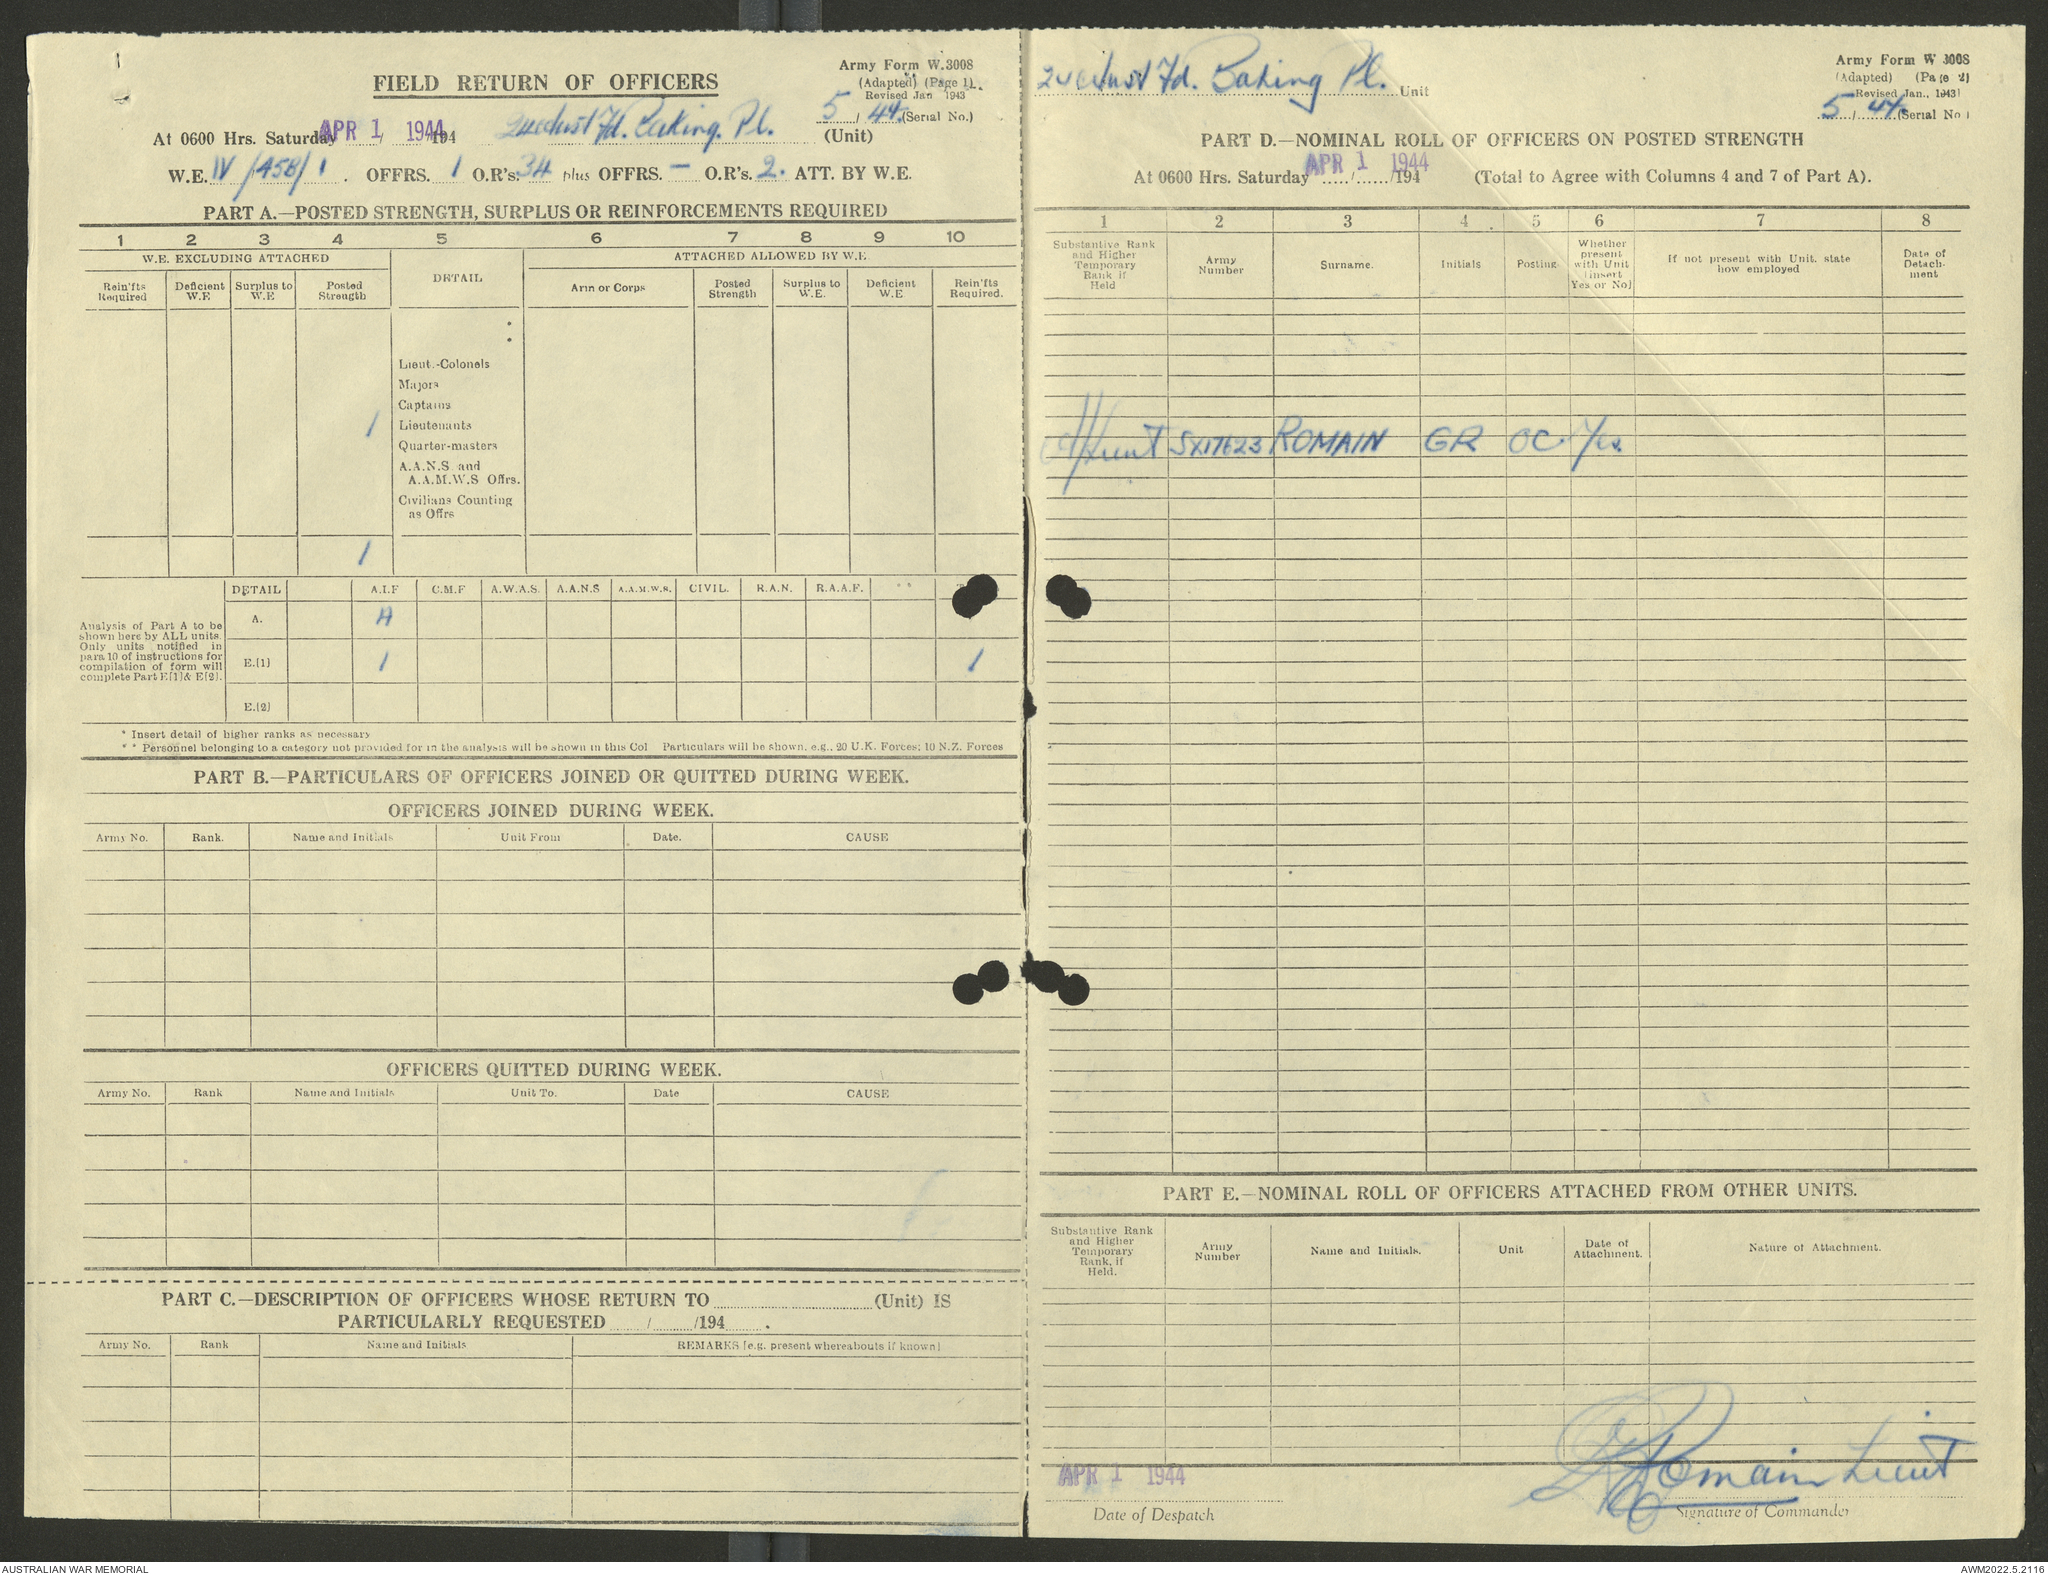 FIELD RETURN OF OFFICERS
Army Form W.3008
(Adapted) (Page 1)
Revised Jan 1943
5 / 44 (Serial No.)
At 0600 Hrs. Saturday APR 1 1944 194 24 Aust Fd. Baking. Pl. (Unit)
W.E. IV/458/1. OFFRS. 1 O.R's. 34 plus OFFRS. — O.R's. 2. ATT. BY W.E.
PART A.—POSTED STRENGTH, SURPLUS OR REINFORCEMENTS REQUIRED
1 2 3 4 5 6 7 8 9 10
W.E. EXCLUDING ATTACHED
DETAIL
ATTACHED ALLOWED BY W.E.
Rein'fts Required
Deficient W.E
Surplus to W.E
Posted Strength
Arm or Corps
Posted Strength
Surplus to W.E.
Deficient W.E
Rein'fts Required.
*
*
Lieut.-Colonels
Majors
Captains
1 Lieutenants
Quarter-masters
A.A.N.S and
A.A.M.W.S Offrs.
Civilians Counting
as Offrs
1
Analysis of Part A to be
shown here by ALL units.
Only units notified in
para 10 of instructions for
compilation of form will
complete Part E[1] & E[2].
DETAIL A.I.F C.M.F A.W.A.S. A.A.N.S A.A.M.W.S. CIVIL. R.A.N. R.A.A.F. * *
A. A
E.[1] 1 1
E.[2]
* Insert detail of higher ranks as necessary
* * Personnel belonging to a category not provided for in the analysis will be shown in this Col Particulars will be shown, e.g., 20 U.K. Forces; 10 N.Z. Forces
PART B.—PARTICULARS OF OFFICERS JOINED OR QUITTED DURING WEEK.
OFFICERS JOINED DURING WEEK.
Army No. Rank. Name and Initials Unit From Date. CAUSE
OFFICERS QUITTED DURING WEEK.
Army No. Rank Name and Initials Unit To. Date CAUSE
PART C.—DESCRIPTION OF OFFICERS WHOSE RETURN TO (Unit) IS
PARTICULARLY REQUESTED / /194 .
Army No. Rank Name and Initials REMARKS [e.g. present whereabouts if known]
24 Aust Fd. Baking Pl. Unit
Army Form W 3008
(Adapted) (Page 2)
Revised Jan., 1943
5 / 44 (Serial No)
PART D.—NOMINAL ROLL OF OFFICERS ON POSTED STRENGTH
At 0600 Hrs. Saturday APR 1 1944 / /194 (Total to Agree with Columns 4 and 7 of Part A).
1 2 3 4 5 6 7 8
Substantive Rank and Higher Temporary Rank if Held
Army Number
Surname.
Initials
Posting.
Whether present with Unit [insert Yes or No]
If not present with Unit, state how employed
Date of Detachment
Lieut SX17623 ROMAIN GR OC. Yes.
PART E.—NOMINAL ROLL OF OFFICERS ATTACHED FROM OTHER UNITS.
Substantive Rank and Higher Temporary Rank, if Held.
Army Number
Name and Initials.
Unit
Date of Attachment.
Nature of Attachment.
APR 1 1944
Romain Lieut
Date of Despatch
Signature of Commander
AUSTRALIAN WAR MEMORIAL
AWM2022.5.2116